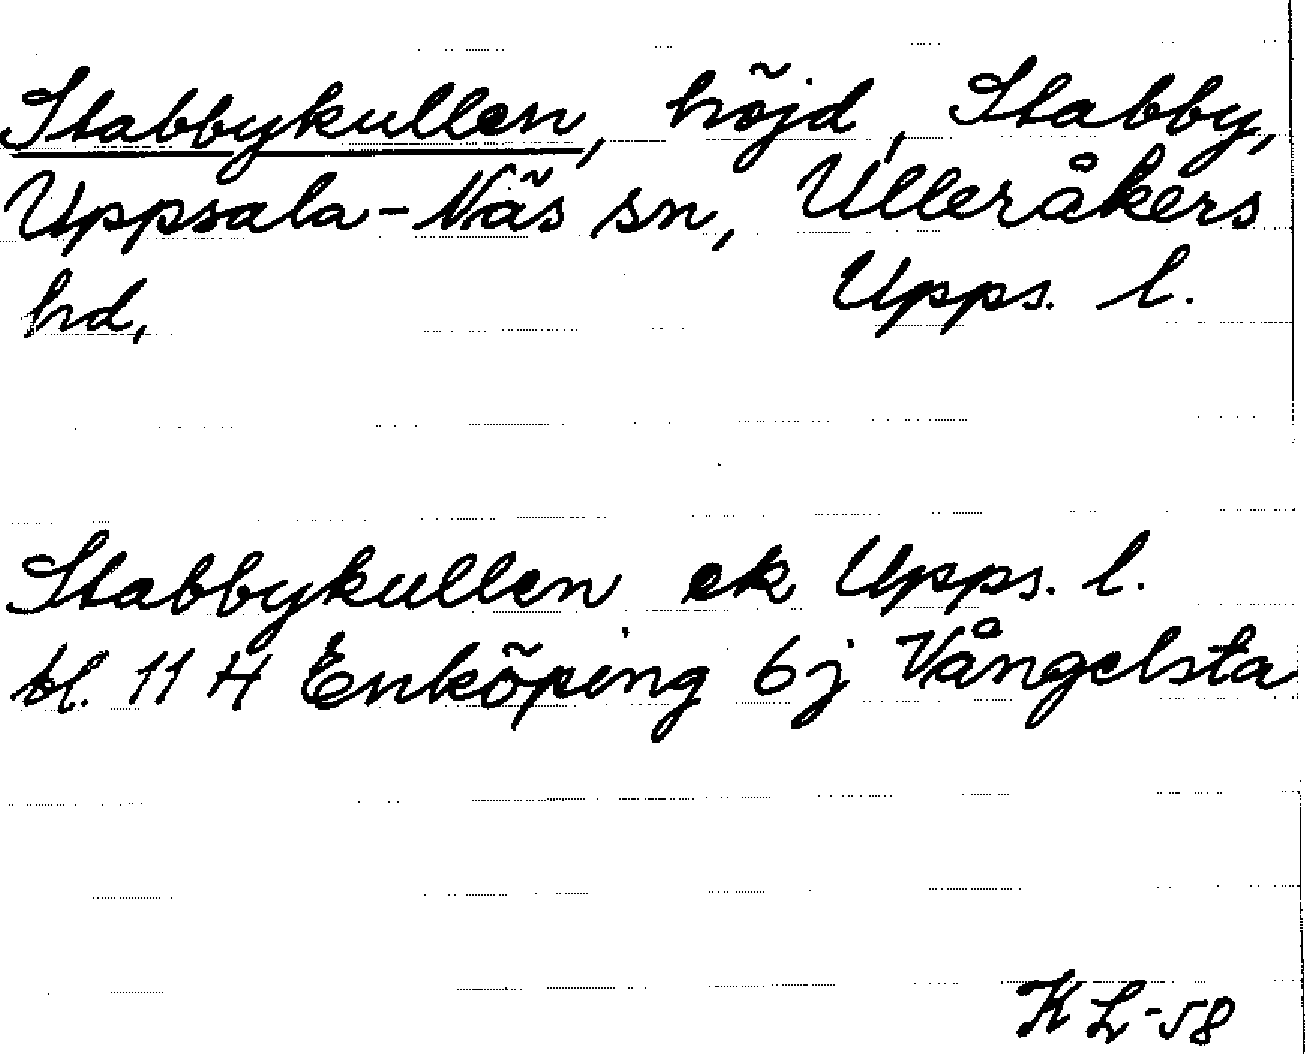 Stabbykullen, höjd, Stabby,
Uppsala-Näs sn, Ulleråkers
hd, Upps. l.
Stabbykullen ek Upps. l.
bl. 11 H Enköping 6j Vångelsta
KL-58